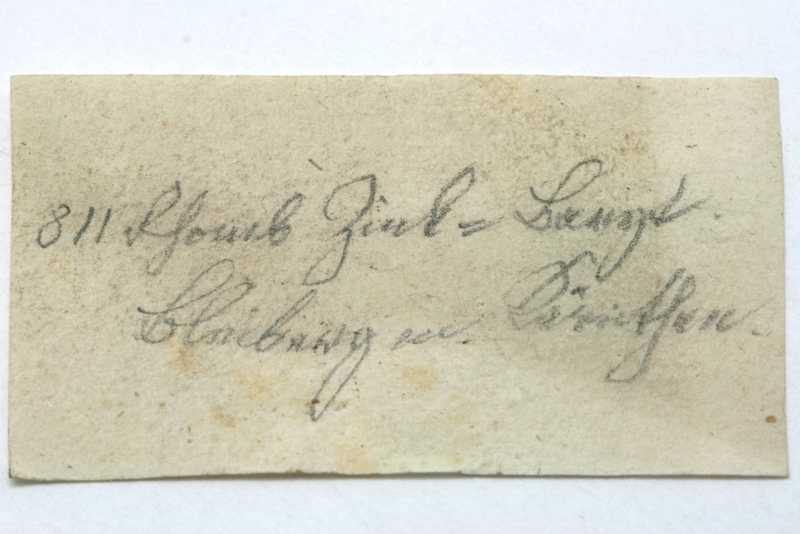 811 Rhomb Zink= Baryt.
Bleiberg in Kärnthen.